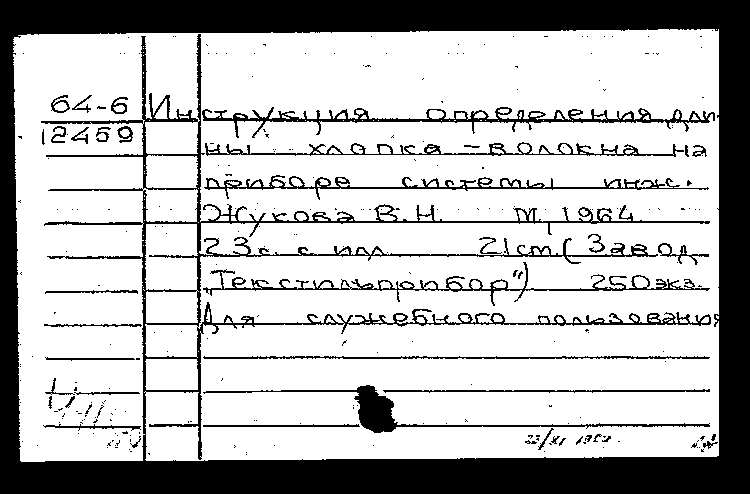 64-6 Инструкция определения дли-
12459 ны хлопка-волокна на
приборе системы инж.
Жукова В.Н. М, 1964.
23 с. с илл 21 см. (Завод
„Текстильприбор") 250 экз.
Для служебного пользования